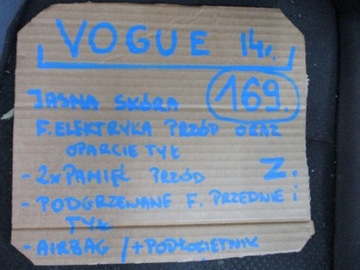 VOGUE 14r.
169.
JASNA SKÓRA
F. ELEKTRYKA PRZÓD ORAZ
OPARCIE TYŁ
Z.
- 2x PAMIĘĆ PRZÓD
- PODGRZEWANE F. PRZEDNIE i
TYŁ
- AIRBAG / + PODŁOKIETNIK